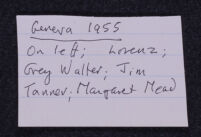 Geneva 1955
On left; Lorenz;
Grey Walter; Jim
Tanner; Margaret Mead